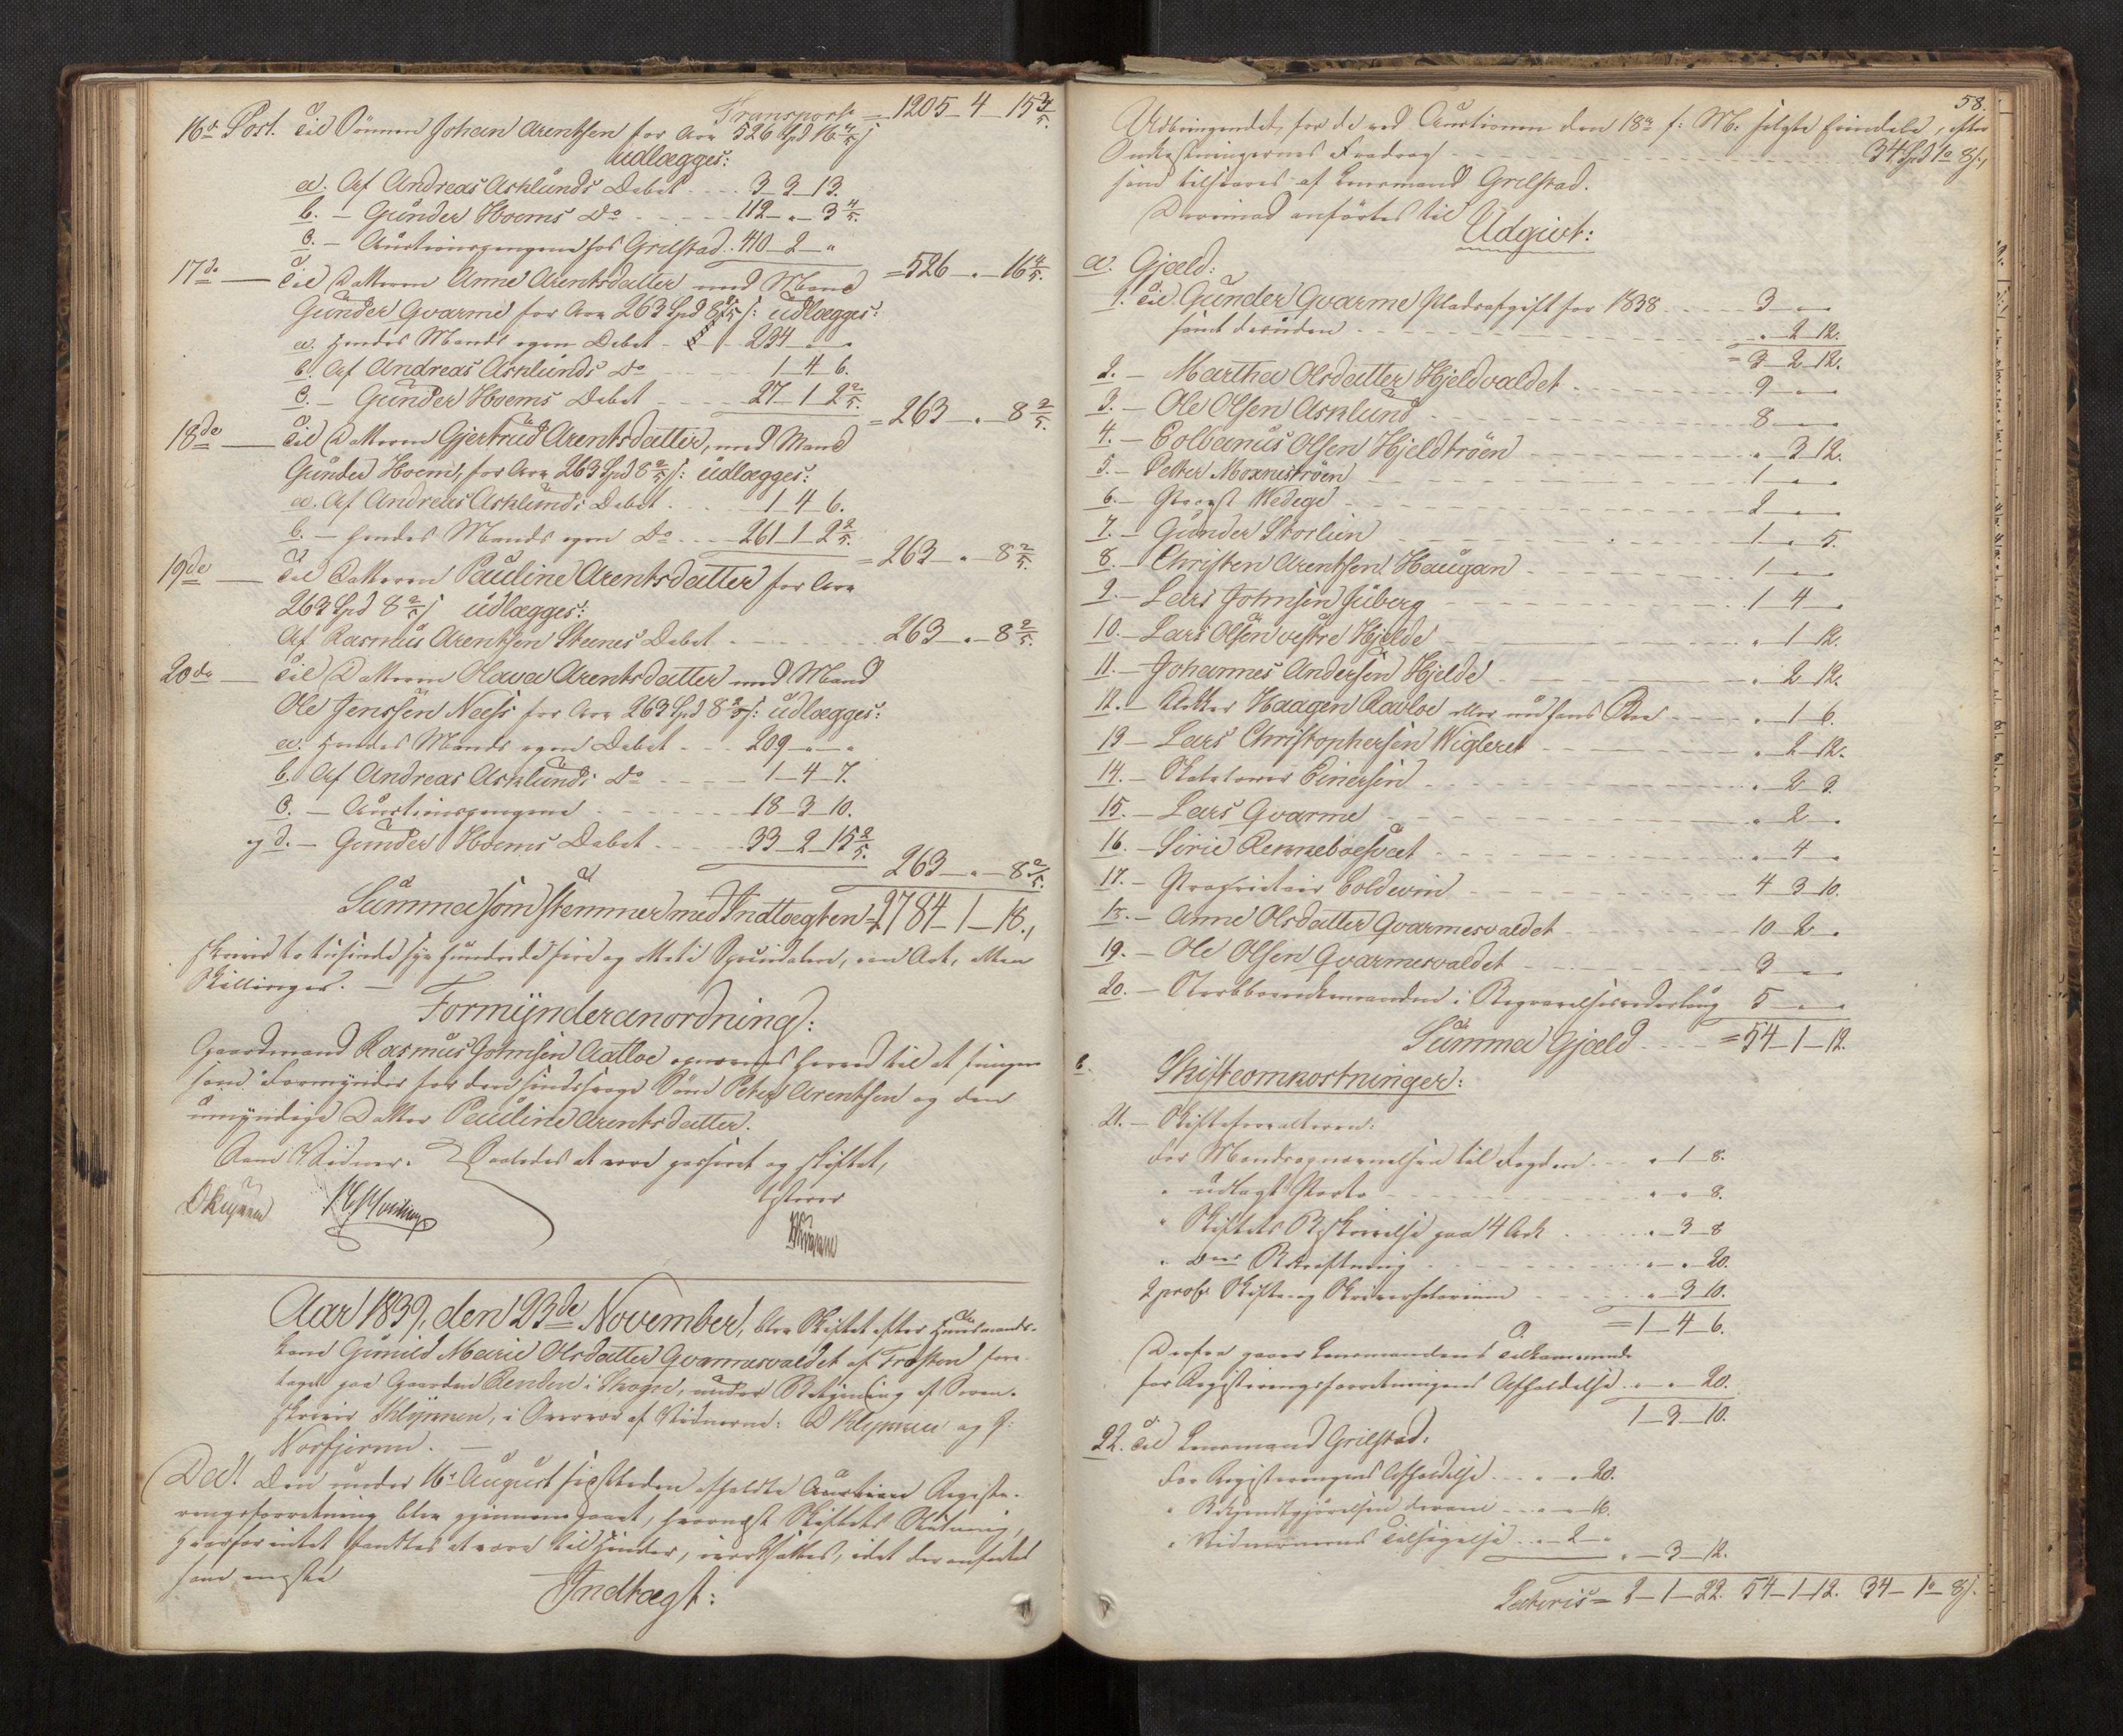 Transport = 1205 - 4 - 15 3/5.
16de Post. Til Sønnen Johan Arentsen for Arv 526 Spd 16 4/5 s
udlægges:
a. Af Andreas Asklunds Debet . . . . 3 - 3 - 13.
b. - Gunder Hoems Do - - - - 112 - " - 3 4/5.
c. - Auctionspengene hos Grilstad . . 410 - 2 - "
= 526 - " - 16 4/5.
17de - Til Datteren Anne Arentsdatter med Mand
Gunder Qvarme for Arv 263 Spd 8 2/5 s: udlægges:
a. Hendes Mands egen Debet - - - 234 - " - "
b. Af Andreas Asklunds Do - - - - 1 - 4 - 6.
c. - Gunder Hoems Debet - - - - 27 - 1 - 2 2/5.
= 263 - " - 8 2/5.
18de - Til Datteren Gjertrud Arentsdatter, med Mand
Gunder Hoem, for Arv 263 Spd 8 2/5 s: udlægges:
a. Af Andreas Asklunds Debet . . . - 1 - 4 - 6.
b. - hendes Mands egen Do . . . - 261 - 1 - 2 2/5.
= 263 - " - 8 2/5.
19de - Til Datteren Pauline Arentsdatter for Arv
263 Spd 8 2/5 s udlægges:
Af Rasmus Arentsen Steenes Debet - - - - 263 - " - 8 2/5.
20de - Til Datteren Olava Arentsdatter med Mand
Ole Jenssen Neess for Arv 263 Spd 8 2/5 s: udlægges:
a. Hendes Mands egen Debet - - - 209 - " - "
b. Af Andreas Asklunds Do - - - - 1 - 4 - 7.
c. - Auctionspengene - - - - - 18 - 3 - 10.
og d. - Gunder Hoems Debet - - - - 33 - 2 - 15 2/5.
263 - " - 8 2/5.
Summa som stemmer med Indtægten = 2784 - 1 - 18.,
skriver to tusinde syv hundrede fire og otteti Speciedaler, een Ort, atten
Skillinger. -
Formynderanordning:
Gaardmand Rasmus Johnsen Aatloe opnævnes herved til at fungere
som Formynder for den sindssvage Søn Peter Arentsen og den
umyndige Datter Pauline Arentsdatter.
Som Vidner. Saaledes at være passeret og skiftet,
DKlüwer
testerer
Klüwer
Aar 1839, den 23de November, blev Skiftet efter Huusmands-
kone Gunild Marie Olsdatter Qvarmesvaldet af Frosten fore-
taget paa Gaarden Renden i Skogn, under Betjening af Soren-
skriver Klüwer, i Overvær af Vidnerne: D Klüwer og
Norfjeren. -
Ded! Den under 16de August sidstleden afholdte Registe-
ringsforretning blev gjennemgaaet, hvornæst Skiftets Slutning,
hvorfor intet fandtes at være til Hinder, iværksattes, idet der anførtes
som næste
Indtægt:
58.
Udbringendet, for de ved Auctionen den 18de f: M: solgte Eiendele, efter
Omkostningernes Fradrag - - - 34 Spd 1o 8 s,
som tilsvares af Lensmand Grilstad.
Derimod anførtes til
Udgivt:
a. Gjæld:
1. Til Gunder Qvarme Pladsafgift for 1838 - - - 3 - " - "
samt desuden - - - " - 2 - 12.
= 3 - 2 - 12.
2. - Martha Olsdatter Hjeldvaldet - - - 9 - " - "
3. - Ole Olsen Asklund - - - 8 - " - "
4. - Colbanus Olsen Hjeldtrøen - - - " - 3 - 12.
5. - Petter Moxnestrøen - - - 1 - " - "
6. - Provst Wedege - - - 2 - " - "
7. - Gunder Storlien - - - 1 - " - 5.
8. - Christen Arentsen Haugan - - - 1 - " - "
9. - Lars Johnsen Juberg - - - 1 - 4 - "
10. - Lars Olsen vestre Hjelde - - - " - 1 - 12.
11. - Johannes Andersen Hjelde - - - " - 2 - 12.
12. - Klokker Haagen Ravloe eller nu hans Boe - - - " - 1 - 6.
13 - Lars Christophersen Wigleret - - - " - 2 - 12.
14. - Einersen - - - " - 2 - 3.
15. - Lars Qvarme - - - " - 2 - "
16. - Sirie Rennebøesveet - - - " - 4 - "
17. - Proprietair Coldevin - - - 4 - 3 - 10.
18. - Anne Olsdatter Qvarmesvaldet - - - 10 - 2 - "
19. - Ole Olsen Qvarmesvaldet - - - 3 - " - "
20. - Sterkboenkemanden i Begravelsesvederlag 5 - " - "
Summa Gjæld - - - = 54 - 1 - 12.
b. Skifteomkostninger:
21. - Skifteforvalteren:
For Mandsopnævnelsen til Fogden - - - " - 1 - 8.
" udlagt Porto - - - " - " - 8.
" Skiftets Beskrivelse paa 4 Ark - - - " - 3 - 8
" dens Bekræftning - - - " - " - 20.
2 proC Skifte og Skriversalarium - - - " - 3 - 10.
= 1 - 4 - 6.
Derfra gaaer Lensmandens Tilkommende
for Registeringsforretningens Afholdelse - - " - " - 20.
1 - 3 - 10.
22. Til Lensmand Grilstad:
For Registeringens Afholdelse . . . " - " - 20.
" Bekjendtgjørelsen derom - - " - " - 16.
" Vidnernes Tilsigelse . . " - 2 - "
" - 3 - 12.
Lateris = 2 - 1 - 22. 54 - 1 - 12. 34 - 1o - 8 s.